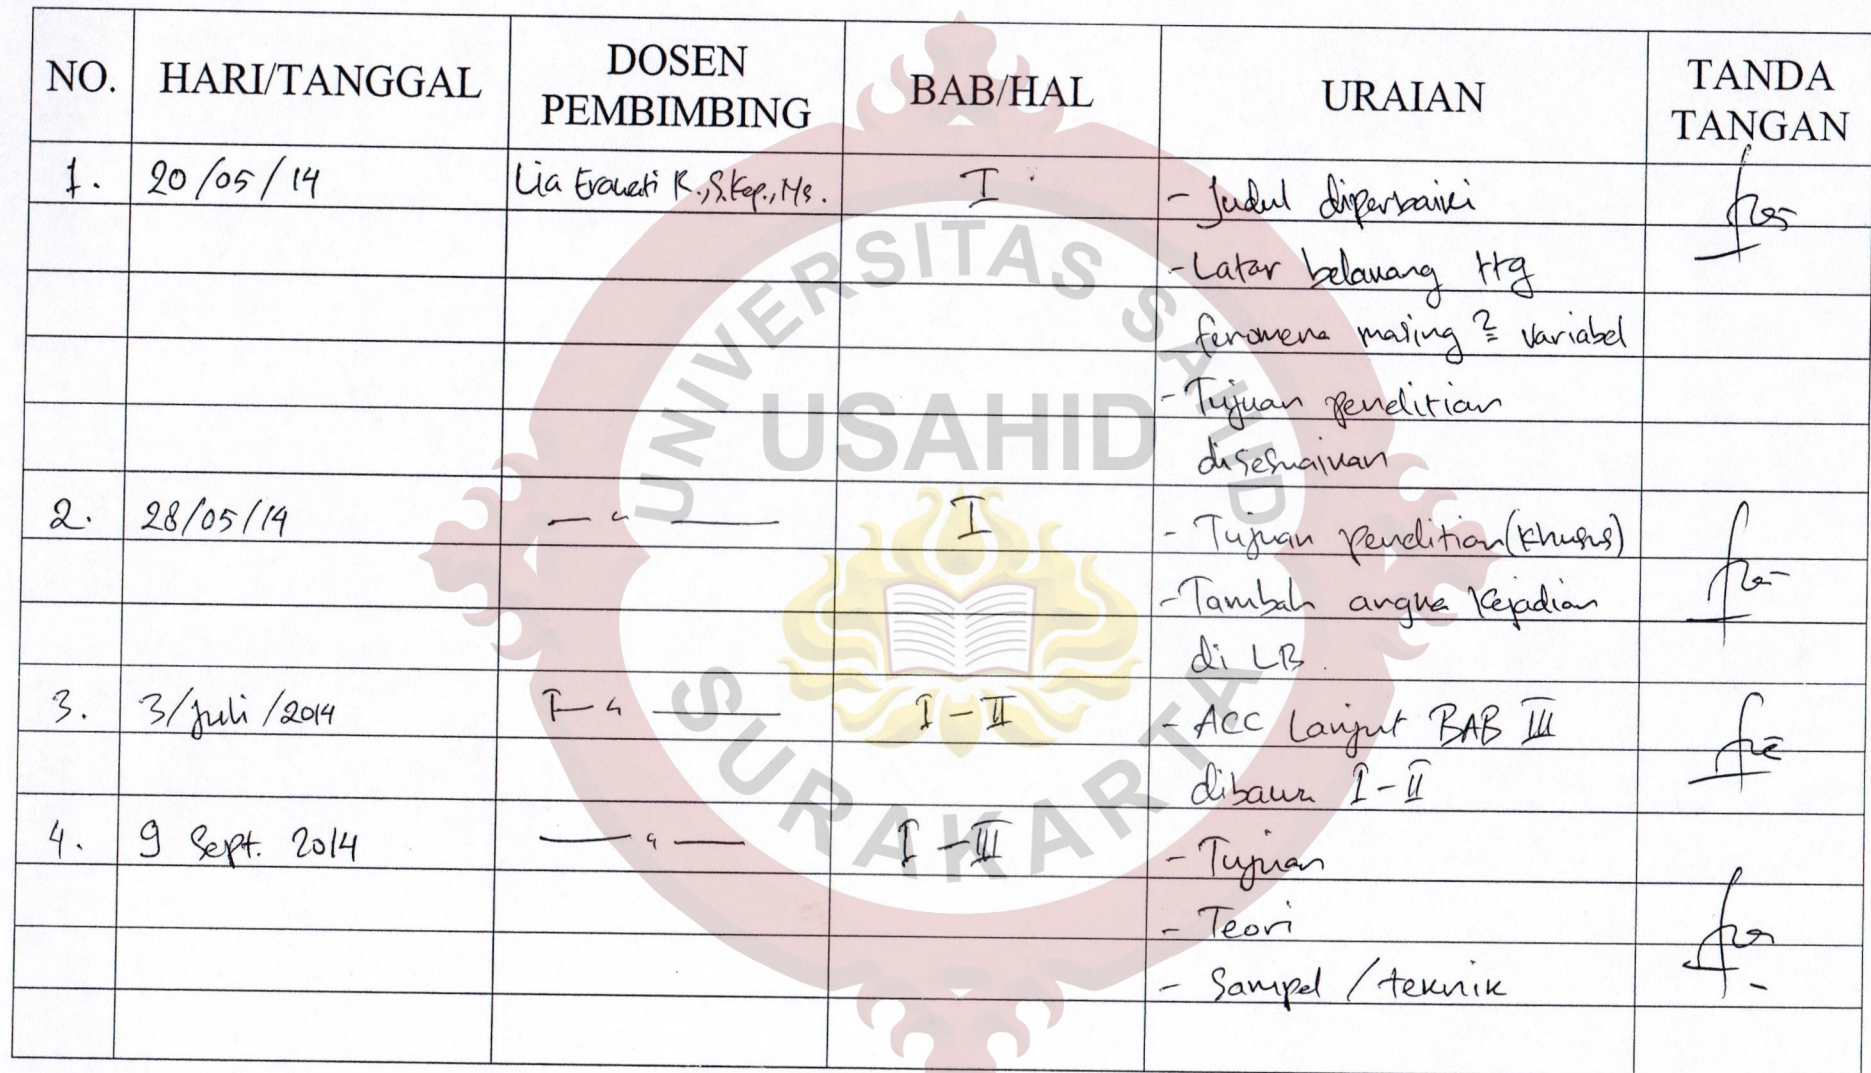 NO. HARI/TANGGAL DOSEN PEMBIMBING BAB/HAL URAIAN TANDA TANGAN
1. 20/05/14 Lia Erawati R., S.Kep., Ns. I - Judul diperbaiki
- Latar belakang ttg
fenomena masing2 variabel
- Tujuan penelitian
disesuaikan
2. 28/05/14 — " — I - Tujuan penelitian (khusus)
- Tambah angka kejadian
di LB.
3. 3/Juli/2014 — " — I - II - ACC Lanjut BAB III
dibawa I - II
4. 9 Sept. 2014 — " — I - III - Tujuan
- Teori
- Sampel / teknik
UNIVERSITAS SAHID
USAHID
SURAKARTA